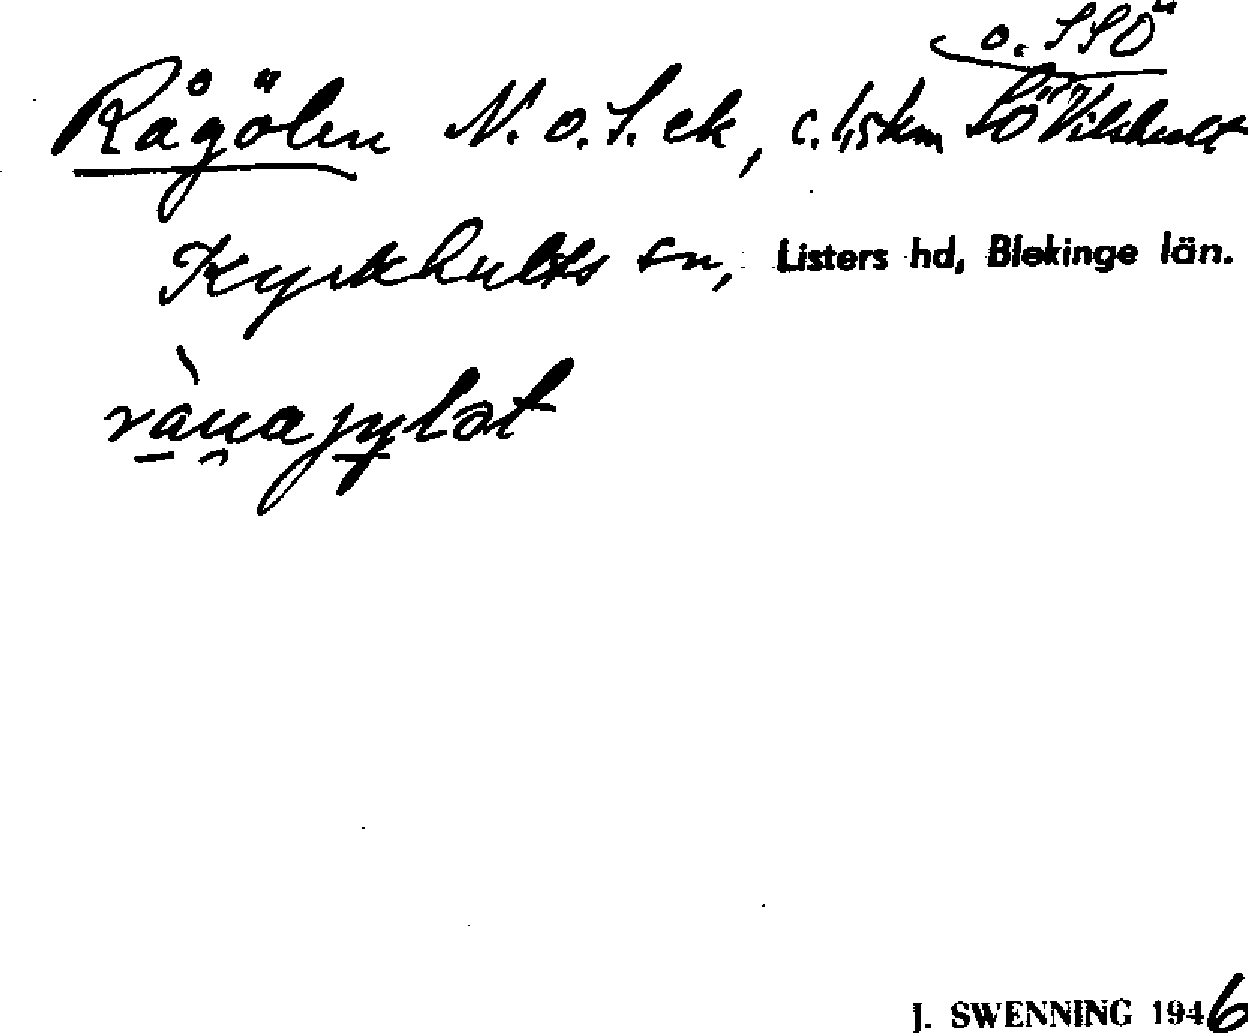 o. SSÖ
Rågölen N. o. S. ek, c. 1,5 km SÖ Vilshult
Kyrkhults sn, Listers hd, Blekinge län.
J. SWENNING 1946